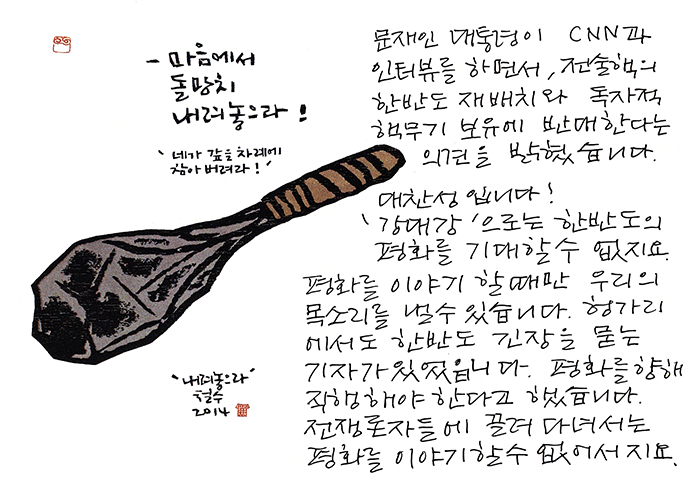 - 마음에서
돌망치
내려놓으라!
'네가 갚을 차례에
참아버려라!'
"내려놓으라"
철수
2014
문재인 대통령이 CNN과
인터뷰를 하면서, 전술핵의
한반도 재배치와 독자적
핵무기 보유에 반대한다는
의견을 밝혔습니다.
대찬성입니다!
'강대강'으로는 한반도의
평화를 기대할 수 없지요.
평화를 이야기 할 때만 우리의
목소리를 낼 수 있습니다. 헝가리
에서도 한반도 긴장을 묻는
기자가 있었습니다. 평화를 향해
직행해야 한다고 했습니다.
전쟁론자들에 끌려 다녀서는
평화를 이야기할 수 없어서지요.